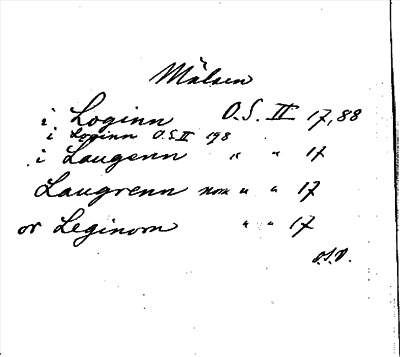 Målsen
i Loginn O.S. II 17,88
i Loginn O.S II 198
i Laugenn " " 17
Laugrenn nom " " 17
or Leginom " " 17
O.S.D.